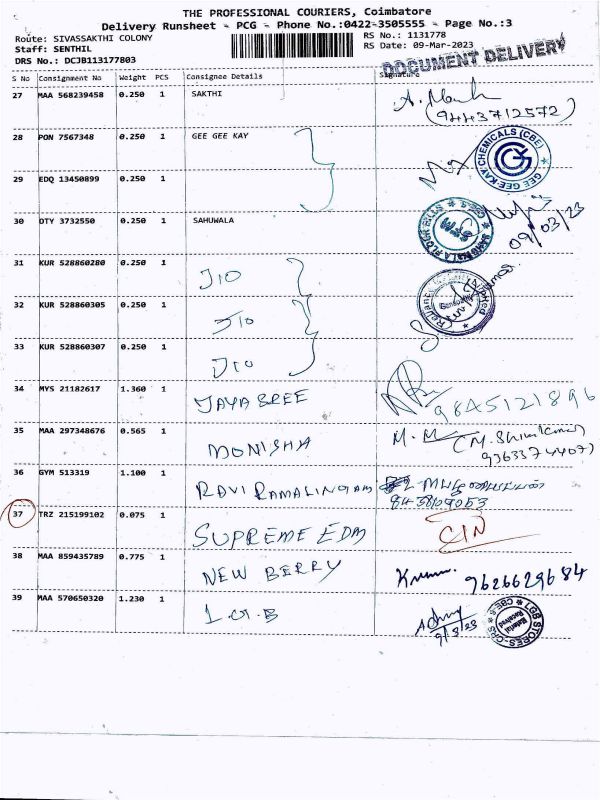 THE PROFESSIONAL COURIERS, Coimbatore
Delivery Runsheet - PCG - Phone No.:0422-3505555 - Page No.:3
Route: SIVASSAKTHI COLONY
RS No.: 1131778
Staff: SENTHIL
RS Date: 09-Mar-2023
DRS No.: DCJB113177803
DOCUMENT DELIVERY
S No Consignment No Weight PCS Consignee Details Signature
27 MAA 568239458 0.250 1 SAKTHI
(9443712572)
28 PON 7567348 0.250 1 GEE GEE KAY
GEE GEE KAY CHEMICALS (CBE)
29 EDQ 13450899 0.250 1
30 DTY 3732550 0.250 1 SAHUWALA
09/03/23
31 KUR 528860280 0.250 1 JIO
32 KUR 528860305 0.250 1 JIO
33 KUR 528860307 0.250 1 JIO
34 MYS 21182617 1.360 1 JAYA SREE
9845121896
35 MAA 297348676 0.565 1 MONISHA
9363374407)
36 GYM 513319 1.100 1 RAVI RAMALINGAM
37 TRZ 215199102 0.075 1 SUPREME EDM
38 MAA 859435789 0.775 1 NEW BERRY
9626629684
39 MAA 570650320 1.230 1 L.G.B
9/3/23
LGB STORES-CPS
Material Received